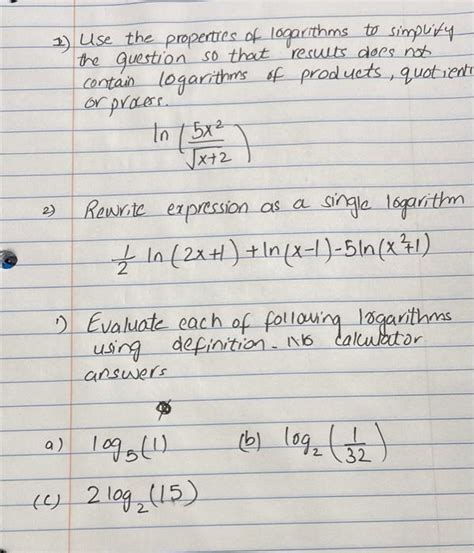 1) Use the properties of logarithms to simplify
the question so that results does not
contain logarithms of products, quotients
or process.
ln (5x²/√x+2)
2) Rewrite expression as a single logarithm
1/2 ln (2x+1) + ln(x-1) - 5ln(x²+1)
1) Evaluate each of following logarithms
using definition - No calculator
answers
a) log₅(1) (b) log₂(1/32)
(c) 2 log₂(15)